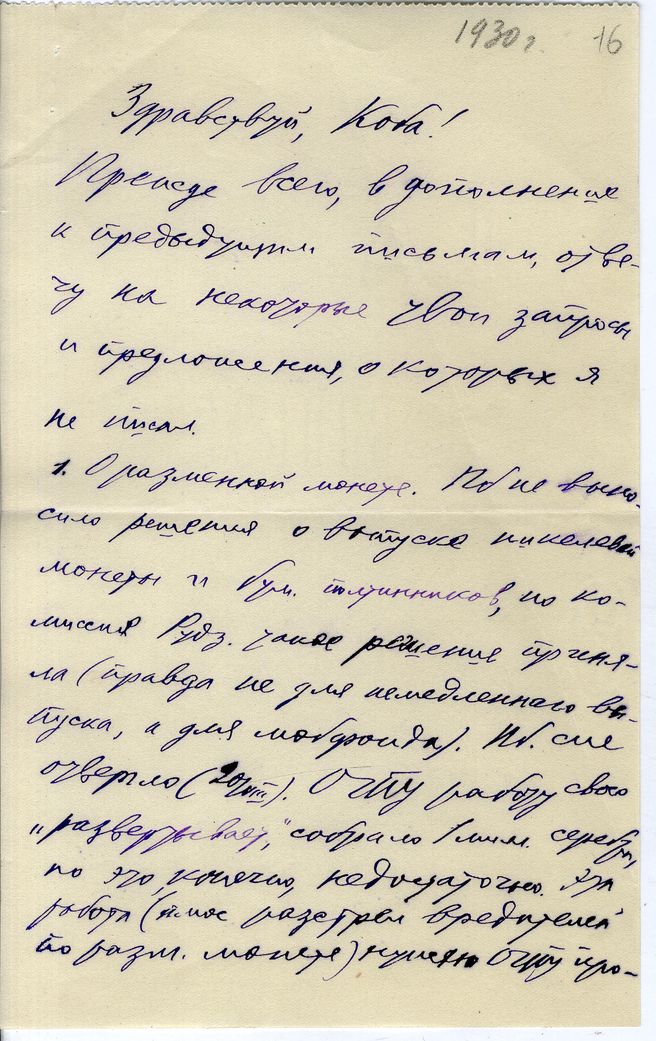 1930 г. 16
Здравствуй, Коба!
Прежде всего, в дополнение
к предыдущим письмам, отве-
чу на некоторые твои запросы
и предложения, о которых я
не писал.
1. О разменной монете. Пб не выно-
сило решения о выпуске никелевой
монеты и бум. полтинников, но ко-
миссия Рудз. такое решение приня-
ла (правда не для немедленного вы-
пуска, а для мобфонда). Пб. сие
отвергло (20/VIII). ОГПУ работу свою
„развертывает“, собрало 1 мил. серебра,
но это, конечно, недостаточно. Эта
работа (плюс расстрел вредителей
по разм. монете) нужно ОГПУ про-